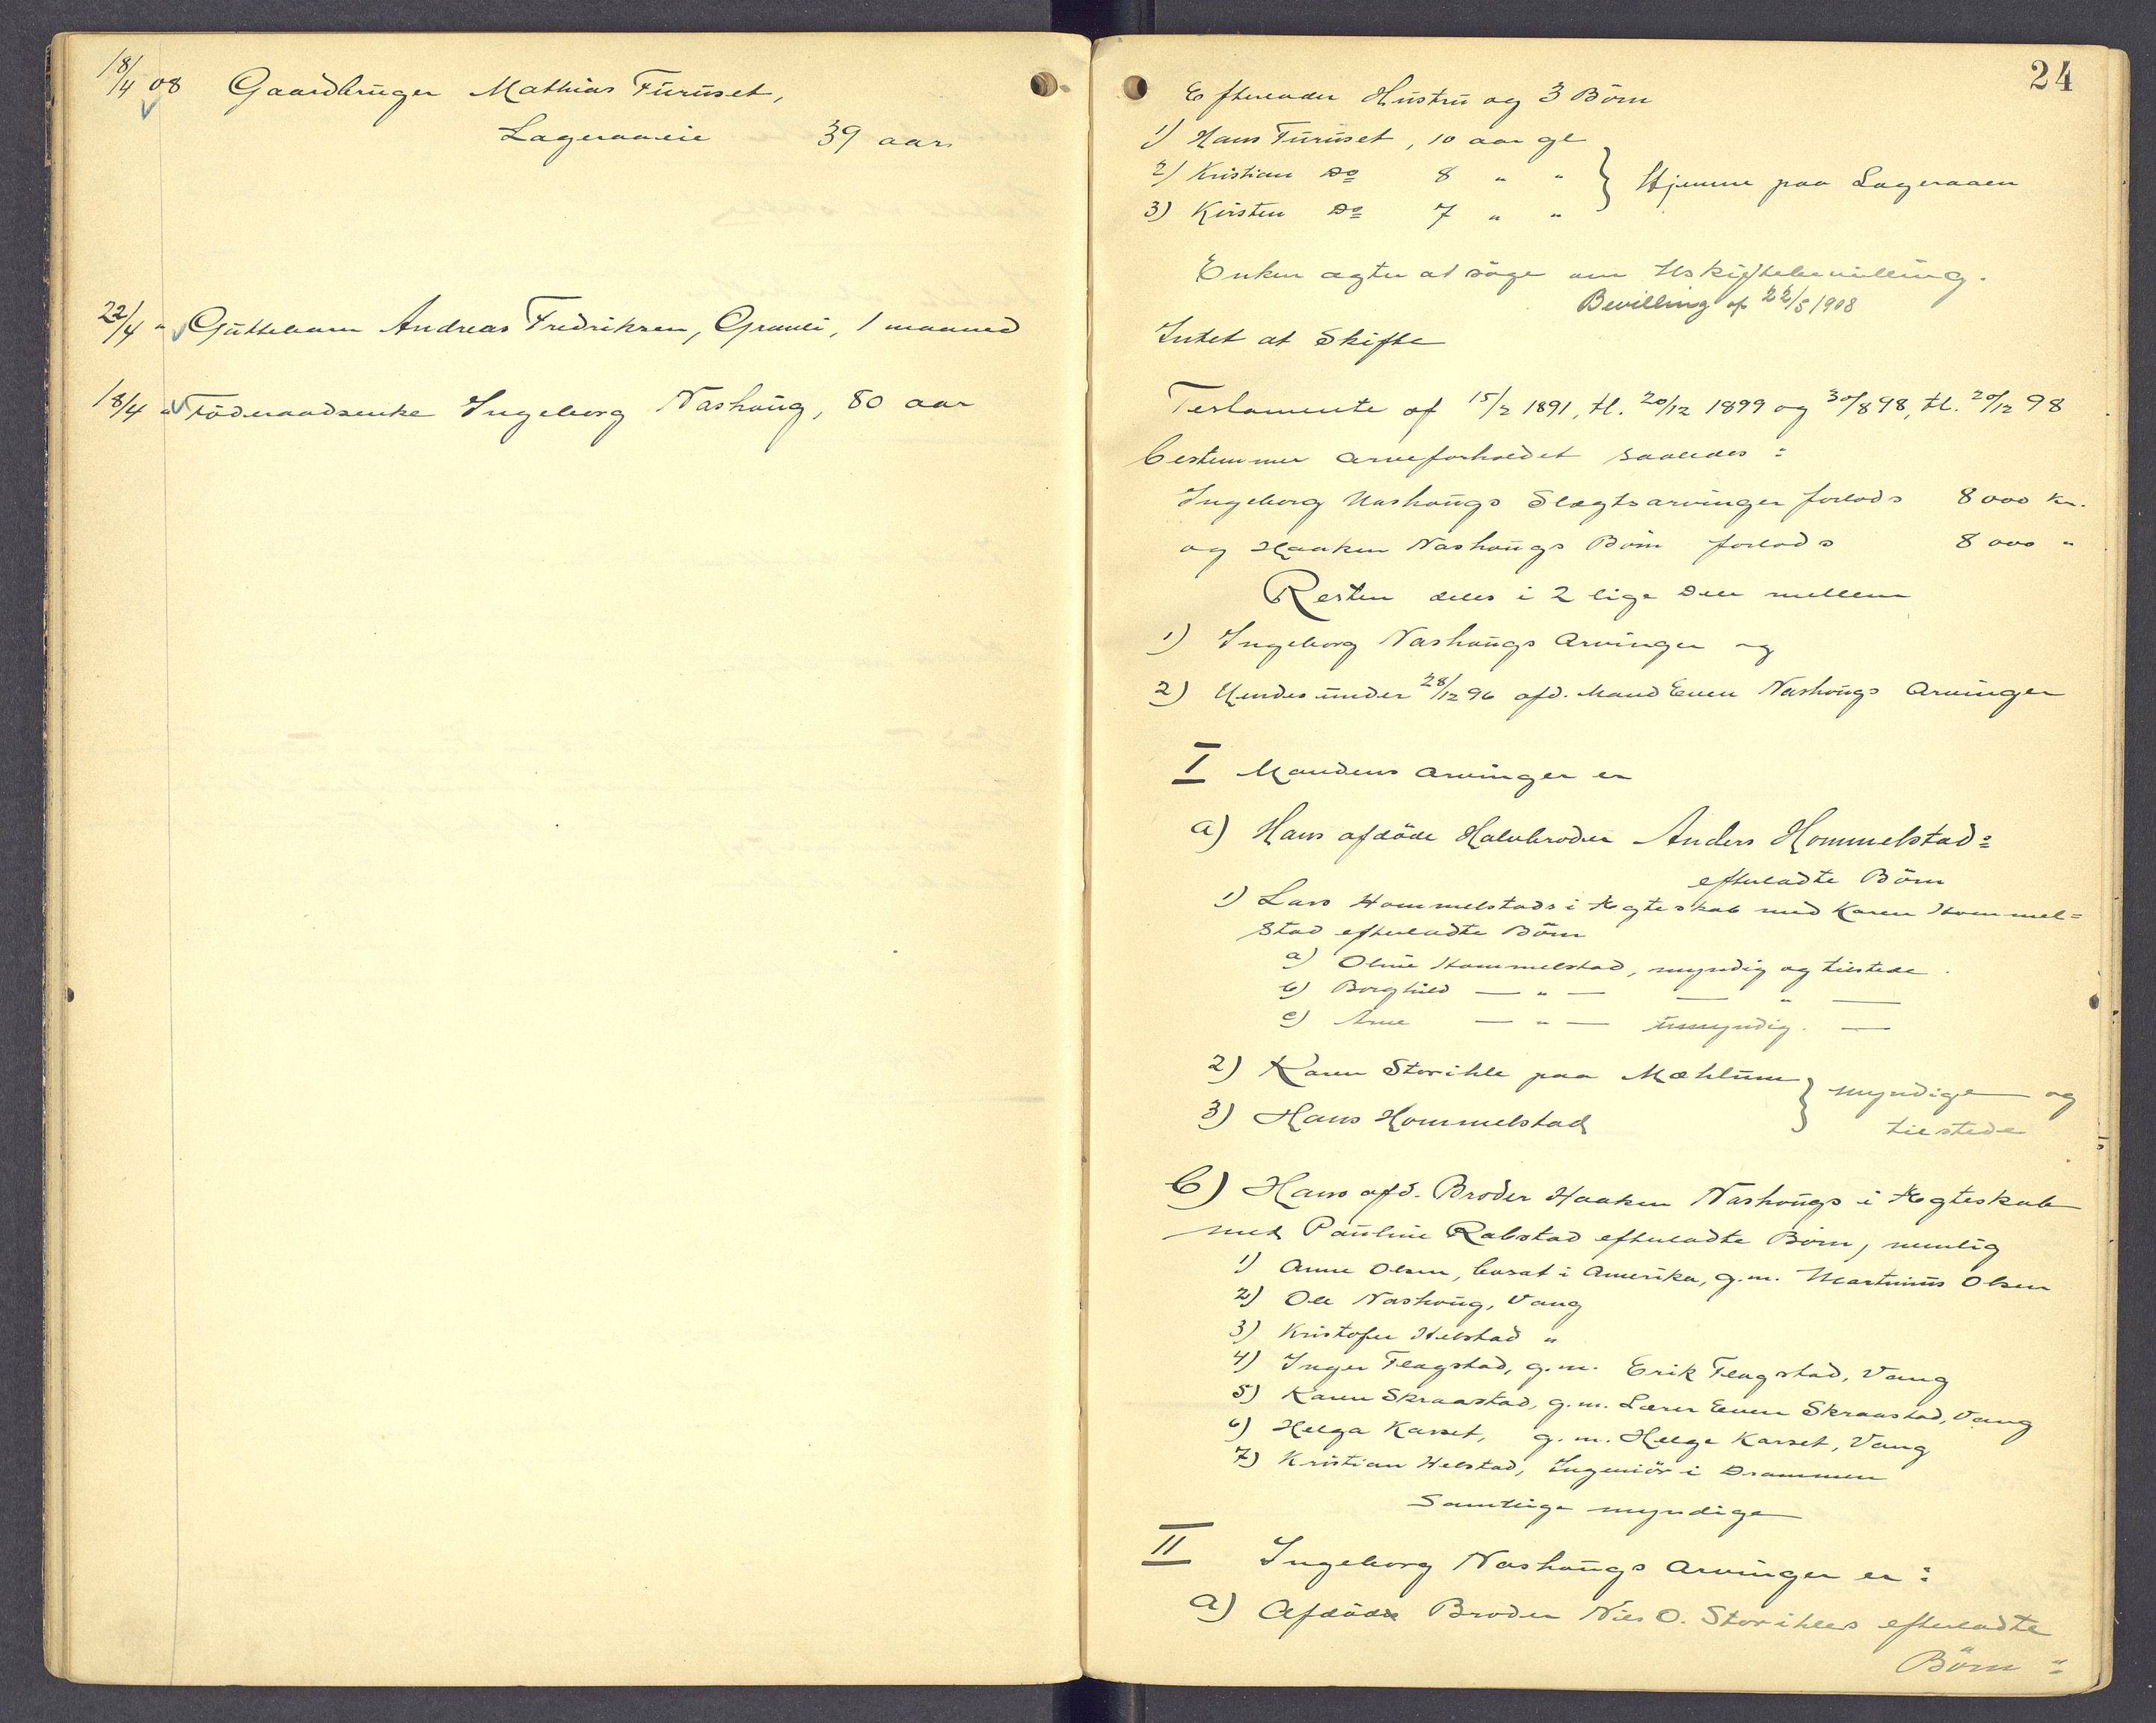 18/4 08 Gaardbruger Mathias Furuset,
Lageraaeie 39 aar
22/4 " Guttebarn Andreas Fredriksen, Granli, 1 maaned
18/4 " Föderaadsenke Ingeborg Nashoug, 80 aar
24
Efterlader Hustru og 3 Börn
1) Hans Furuset, 10 aar gl
2) Kristian Do 8 " "
} Hjemme paa Lageraaen
3) Kirsten Do 7 " "
Enken agter at söge om Uskiftebevilling.
Bevilling af 22/5 1908
Intet at Skifte
Testamente af 15/2 1891, tl. 20/12 1899 og 30/8 98, tl. 20/12 98
bestemmer arveforholdet saaledes :
Ingeborg Nashougs Slægtsarvinger forlods 8000 Kr.
og Haaken Nashougs Börn forlods 8000 "
Resten deles i 2 lige Dele mellem
1) Ingeborg Nashougs Arvinger og
2) Hendes under 28/12 96 afd. Mand Even Nashougs Arvinger
I Mandens Arvinger er
a) Hans afdöde Halvbroder Anders Hommelstad=
efterladte Börn
1) Lars Hommelstads i Ægteskab med Karen Hommel=
stad efterladte Börn
a) Oline Hommelstad, myndig og tilstede.
b) Borghild — " — — " —
c) Arne — " — umyndig. —
2) Karen Storihle paa Mæhlum
} myndige og
3) Hans Hommelstad
tilstede
b) Hans afd. Broder Haaken Nashougs i Ægteskab
med Pauline Rabstad efterladte Börn, nemlig
1) Anne Olsen, bosat i Amerika, g.m. Martinius Olsen
2) Ole Nashoug, Vang
3) Kristofer Helstad "
4) Inger Flagstad, g.m. Erik Flagstad, Vang
5) Karen Skraastad, g.m. Lærer Even Skraastad, Vang
6) Helga Karset, g.m. Helge Karset, Vang
7) Kristian Helstad, Ingeniör i Drammen
Samtlige myndige
II Ingeborg Nashougs Arvinger er :
a) Afdöde Broder Nils O. Storihles efterladte
Börn :